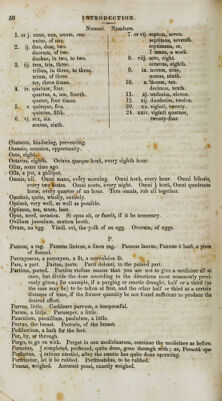 50
INTRODUCTION.
Numeri.
Numbers.
1. or j. unus, una, unum, one.
unius, of one.
2. ij. duo, duæ, two.
duorum, of two.
duobus, in two, to two.
3. iij. tres, tria, three.
tribus, in three, to three.
trium, of three.
ter, three times.
4. iv. quatuor, four.
quartus, a, um, fourth.
quater, four times.
5. v. quinque, five.
quintus, fifth.
6. vj. sex, six.
sextus, sixth.
7. or vij. septem, seven.
septimus, seventh.
septimana, æ,
7 mane, a week.
8. viij. octo, eight.
octavus, eighth.
9. ix. novem, nine.
nonus, ninth.
10. x. decem, ten.
decimus, tenth.
11. xj. undecim, eleven.
12. xij. duodecim, twelve.
20. xx. viginti, twenty.
24. xxiv. viginti quatuor,
twenty-four.
Obstante, hindering, preventing.
Occasio, occasion, opportunity.
Octo, eight.
Octavus, eighth. Octava quaque horâ, every eighth hour.
Olim, some time ago.
Olla, a pot, a gallipot.
Omnis, all. Omni mane, every morning. Omni horâ, every hour. Omni bihorio,
every two hours. Omni nocte, every night. Omni ¼ horâ, Omni quadrante
horæ, every quarter of an hour. Tere omnia, rub all together.
Omnino, quite, wholly, entirely.
Optime, very well, as well as possible.
Optimus, ma, mum, best.
Opus, need, occasion. Si opus sit, or fuerit, if it be necessary.
Ovillum jusculum, mutton broth.
Ovum, an egg. Vitell. ovi, the yolk of an egg. Ovorum, of eggs.
P.
Pannus, a rag. Pannus linteus, a linen rag. Pannus laneus, Pannus è lanâ, a piece
of flannel.
Paroxysmus, a paroxysm, a fit, a convulsion fit.
Pars, a part. Partibus, parts. Parti dolenti, to the pained part.
Partitus, parted. Partitis vicibus means that you are not to give a medicine all at
once, but divide the dose according to the directions most commonly previ-
ously given; for example, if a purging or emetic draught, half or a third (as
the case may be) to be taken at first, and the other half or third at a certain
distance of time, if the former quantity be not found sufficient to produce the
desired effect.
Parvus, little. Cochleare parvum, a teaspoonful.
Parum, a little. Parumper, a little.
Pauculum, pauxillum, paululum, a little.
Pectus, the breast. Pectoris, of the breast.
Pediluvium, a bath for the feet.
Per, by, or through.
Pergo, to go on with. Pergat in usu medicinarum, continue the medicines as before